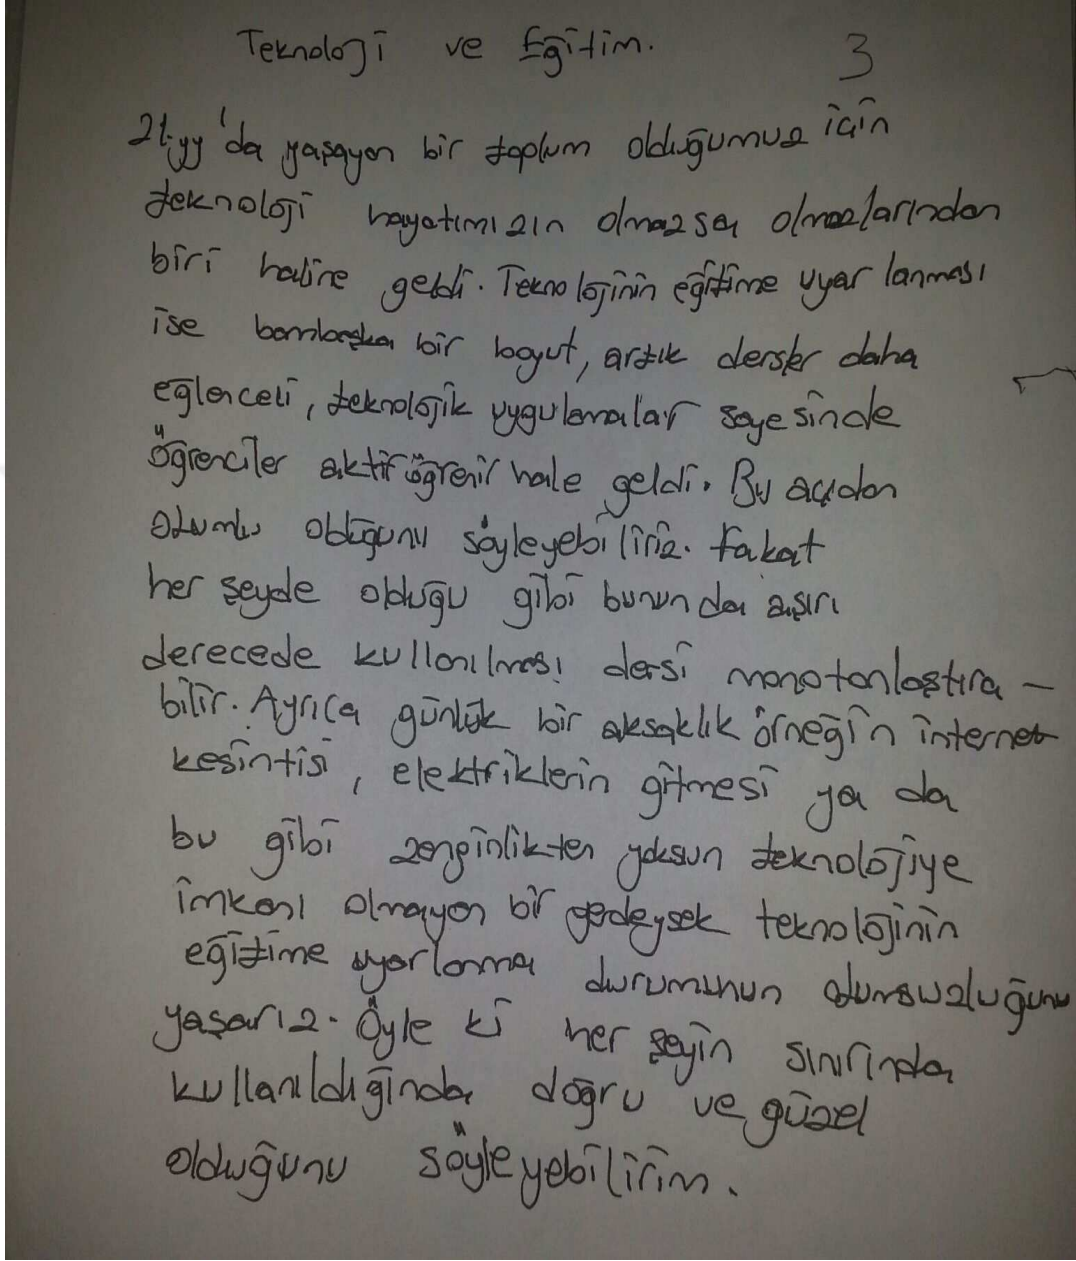 Teknoloji ve Eğitim. 3
21.yy'da yaşayan bir toplum olduğumuz için
teknoloji hayatımızın olmazsa olmazlarından
biri haline geldi. Teknolojinin eğitime uyarlanması
ise bambaşka bir boyut, artık dersler daha
eğlenceli, teknolojik uygulamalar sayesinde
öğrenciler aktif öğrenir hale geldi. Bu açıdan
olumlu olduğunu söyleyebiliriz. Fakat
her şeyde olduğu gibi bununda aşırı
derecede kullanılması dersi monotonlaştıra-
bilir. Ayrıca günlük bir aksaklık örneğin internet
kesintisi, elektriklerin gitmesi ya da
bu gibi zenginlikten yoksun teknolojiye
imkanı olmayan bir yerdeysek teknolojinin
eğitime uyarlanma durumunun olumsuzluğunu
yaşarız. Öyle ki her şeyin sınırında
kullanıldığında doğru ve güzel
olduğunu söyleyebilirim.